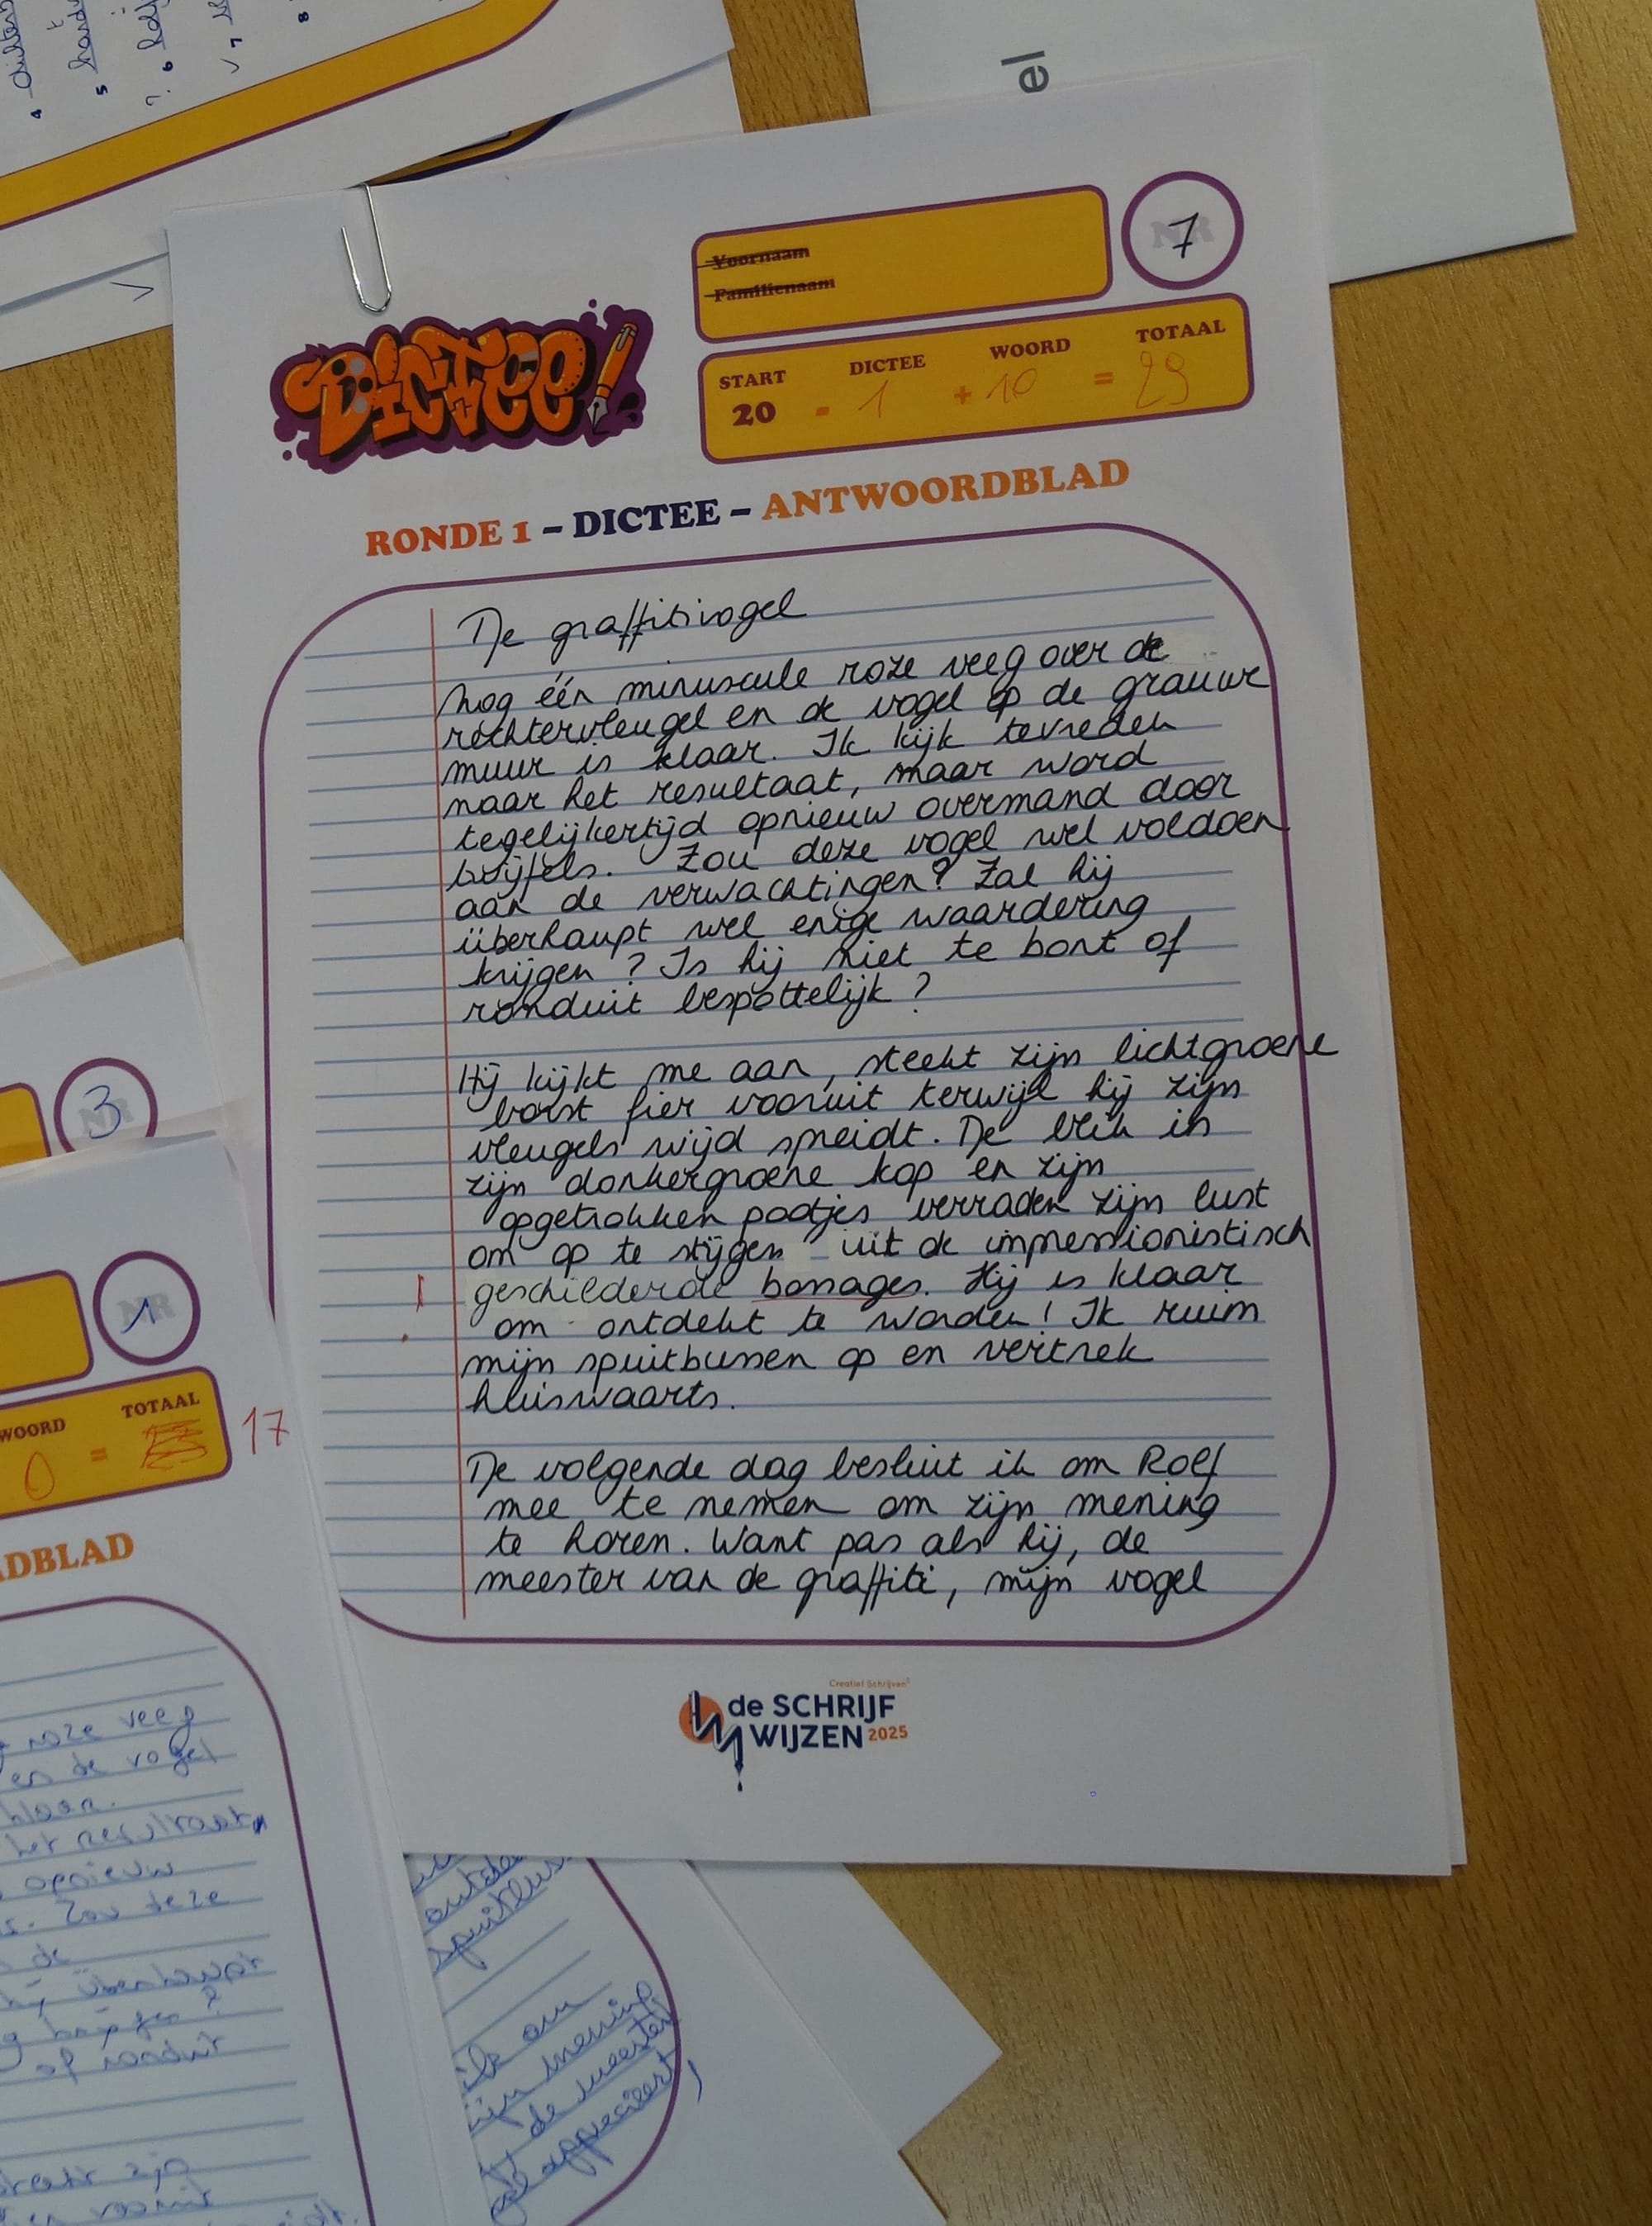 el
4
5
6
7
8
Voornaam
Familienaam
NR
7
START
20
-
DICTEE
1
+
WOORD
10
=
TOTAAL
29
DICTEE!
RONDE 1 – DICTEE – ANTWOORDBLAD
De graffitivogel
Nog één minuscule roze veeg over de
rechtervleugel en de vogel op de grauwe
muur is klaar. Ik kijk tevreden
naar het resultaat, maar word
tegelijkertijd opnieuw overmand door
twijfels. Zou deze vogel wel voldoen
aan de verwachtingen? Zal hij
überhaupt wel enige waardering
krijgen? Is hij niet te bont of
ronduit bespottelijk?
Hij kijkt me aan, steekt zijn lichtgroene
borst fier vooruit terwijl hij zijn
vleugels wijd spreidt. De blik in
zijn donkergroene kop en zijn
opgetrokken pootjes verraden zijn lust
om op te stijgen uit de impressionistisch
geschilderde bossages. Hij is klaar
om ontdekt te worden! Ik ruim
mijn spuitbussen op en vertrek
huiswaarts.
De volgende dag besluit ik om Rolf
mee te nemen om zijn mening
te horen. Want pas als hij, de
meester van de graffiti, mijn vogel
Creatief Schrijven
de SCHRIJF
WIJZEN 2025
NR
3
NR
1
WOORD
0
=
TOTAAL
17
ADBLAD
roze veeg
en de vogel
klaar.
het resultaat,
opnieuw
Zou deze
de
hij überhaupt
krijgen?
of ronduit
zijn
vooruit
ik om
mening
de meester
apprecieert,